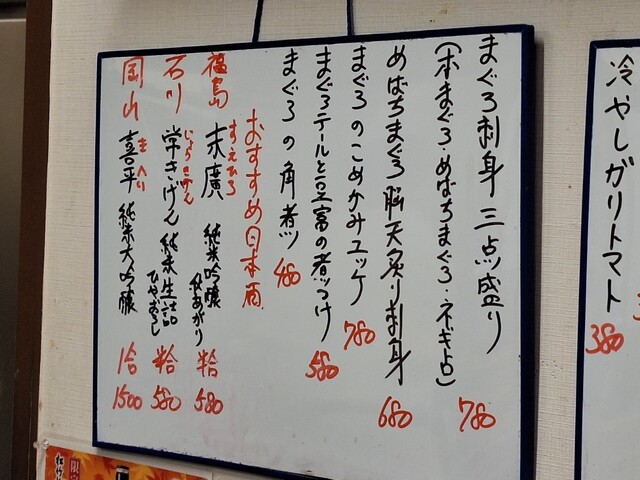 冷やしガリトマト
380
まぐろ刺身 三点盛り
(本まぐろ・めばちまぐろ・ネギ占)
780
めばちまぐろ脳天炙り刺身
680
まぐろのこめかみユッケ
780
まぐろテールと豆富の煮つけ
580
まぐろの角煮
480
おすすめ日本酒
福島 末廣 純米吟醸
すえひろ
580
石川 常きげん 純米生詰
じょうきげん
ひやおろし
580
岡山 喜平 純米大吟醸
きへい
1合
1500
限定